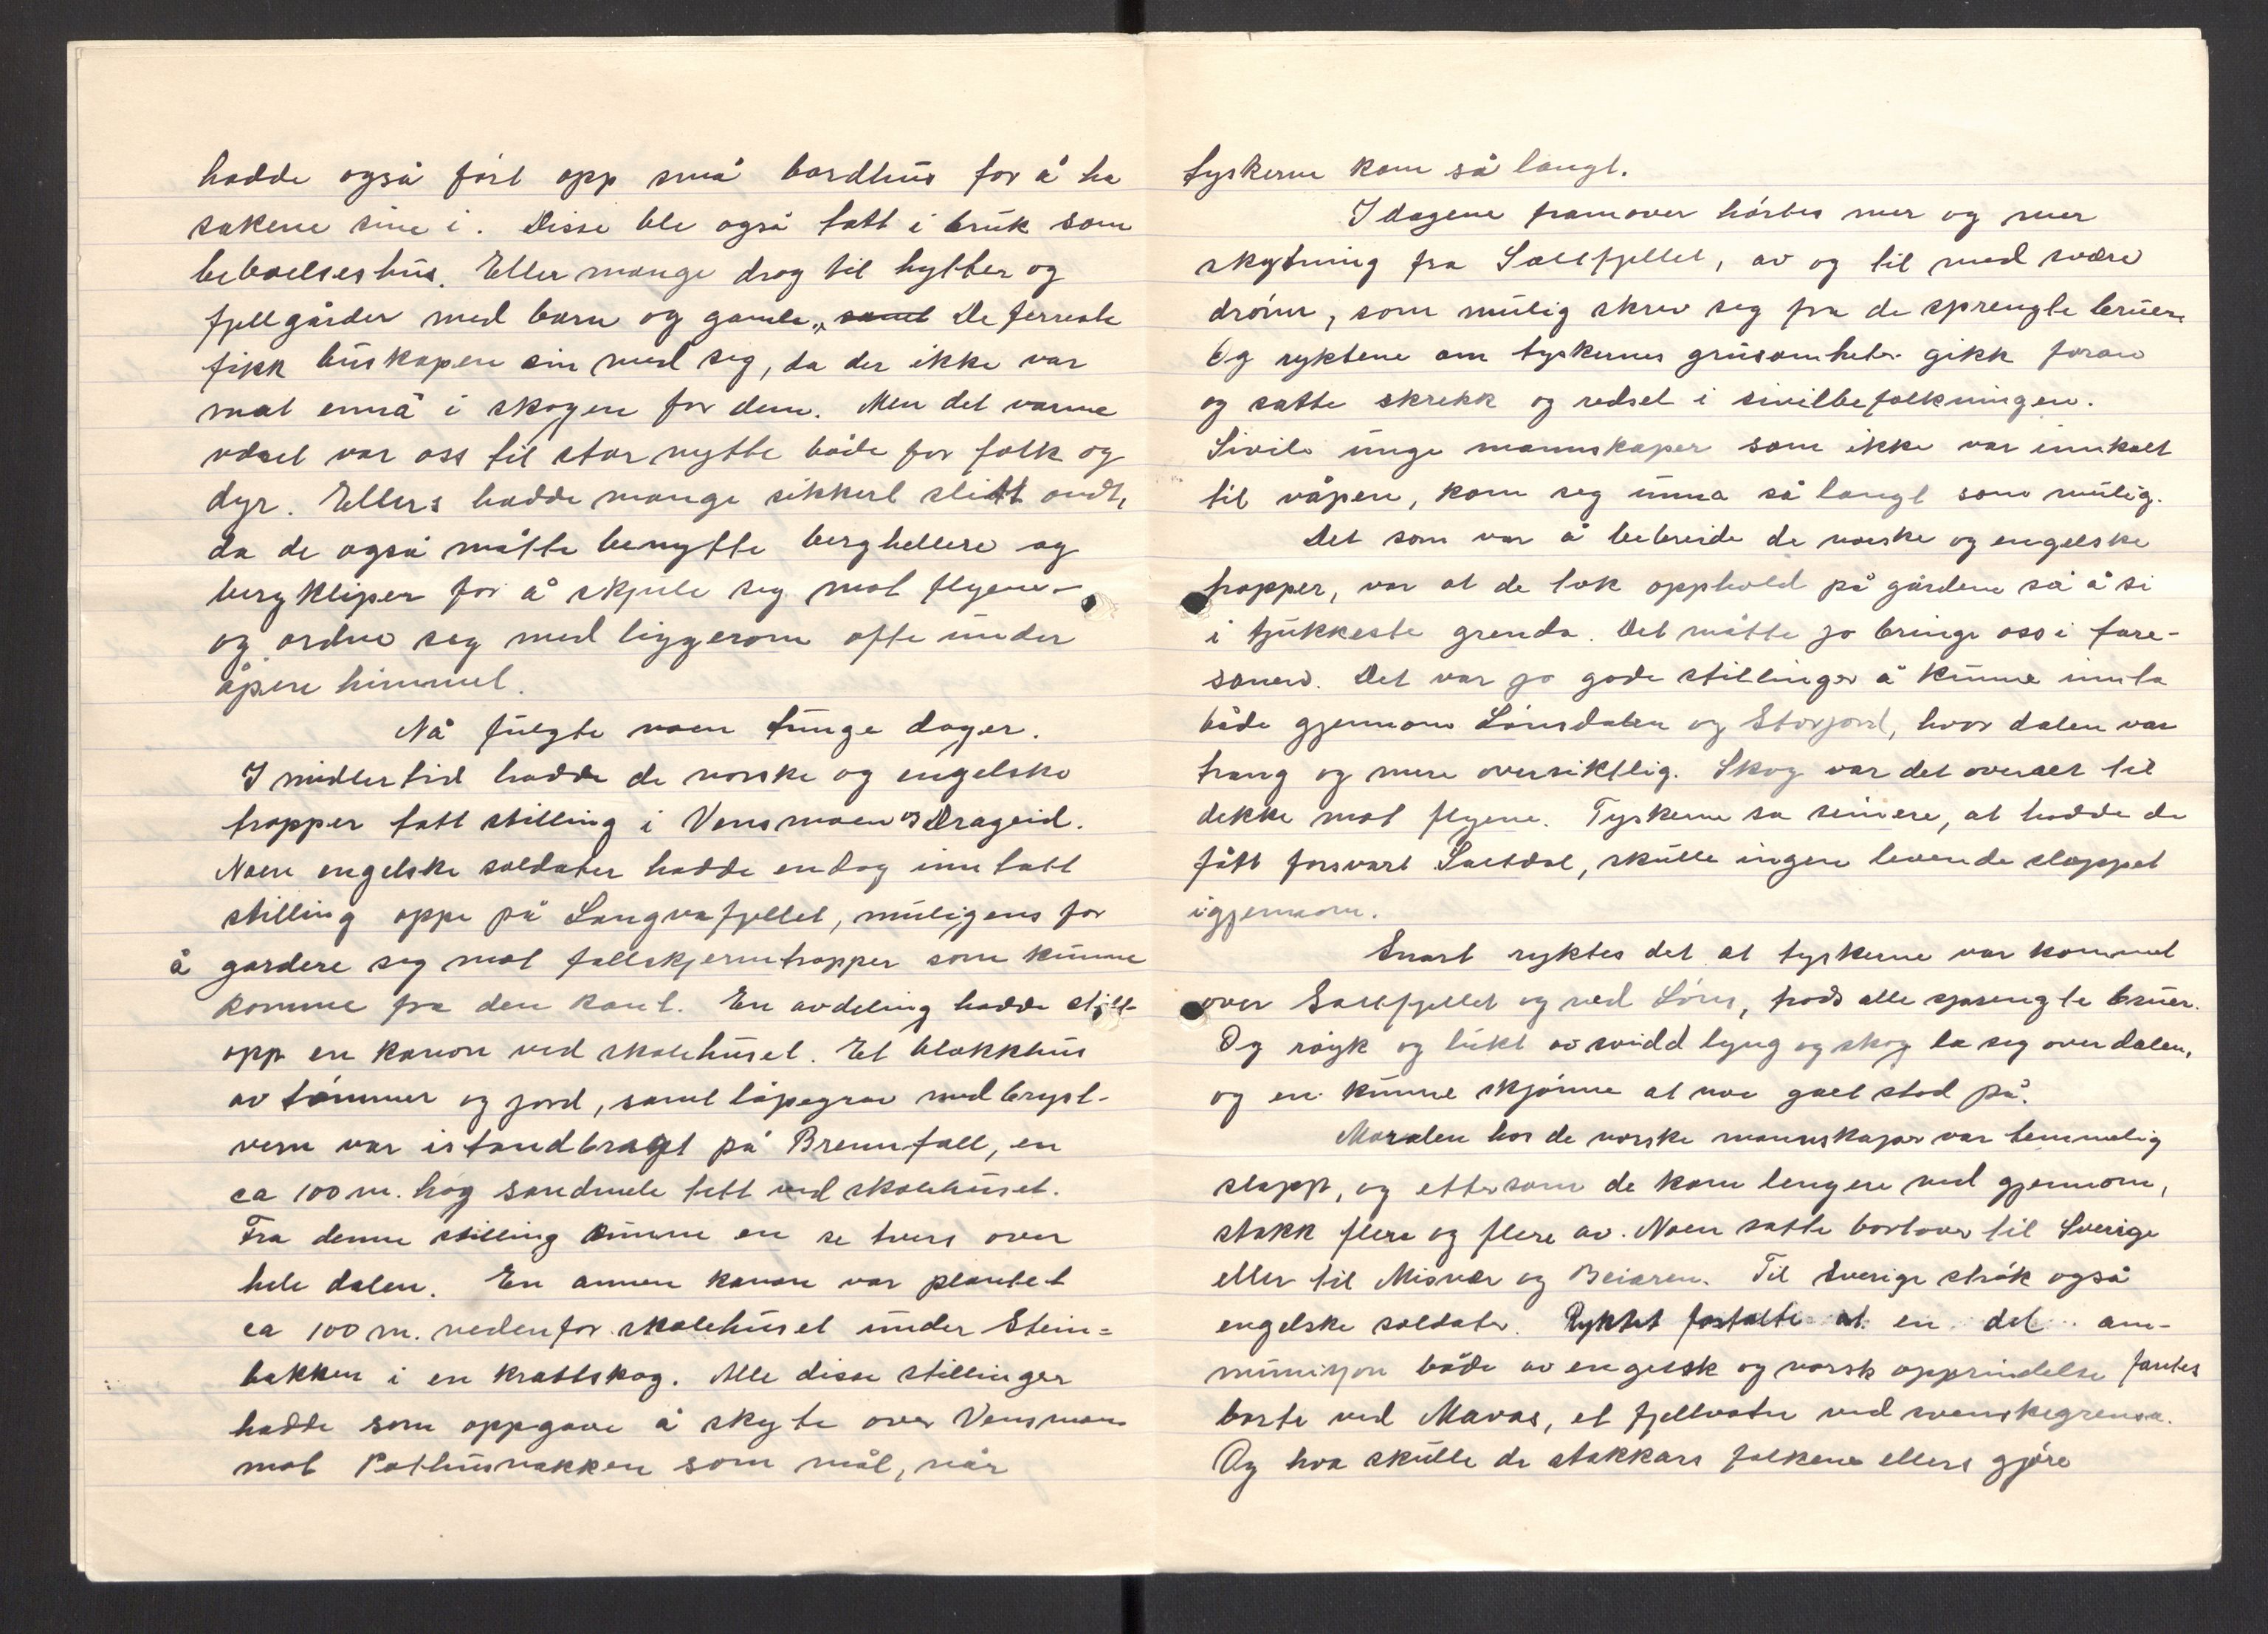 hadde også ført opp små bordhus for å ha
sakene sine i. Disse ble også tatt i bruk som
beboelseshus. Eller mange drog til hytter og
fjellgårder med barn og gamle, samt De ferreste
fikk buskapen sin med seg, da der ikke var
mat ennå i skogen for dem. Men det varme
været var oss til stor nytte både for folk og
dyr. Ellers hadde mange sikkert slitt ondt,
da de også måtte benytte berghellere og
bergkliper for å skjule seg mot flyene-
og ordne seg med liggerom ofte under
åpen himmel.
Nå fulgte noen tunge dager.
I midlertid hadde de norske og engelske
tropper tatt stilling i Vensmoen og Drageid.
Noen engelske soldater hadde endog inntatt
stilling oppe på Langvafjellet, muligens for
å gardere seg mot fallskjermtropper som kunne
komme fra den kant. En avdeling hadde stillt
opp en kanon ved skolehuset. Et blokkhus
av tømmer og jord, samt løpegrav med bryst-
vern var istandbragt på Brennfall, en
ca 100 m. høg sandmele tett ved skolehuset.
Fra denne stilling kunne en se tvers over
hele dalen. En annen kanon var plantet
ca 100 m. nedenfor skolehuset under Stein=
bakken i en krattskog. Alle disse stillinger
hadde som oppgave å skyte over Vensmoen
mot Pothusnakken som mål, når
tyskerne kom så langt.
I dagene framover hørtes mer og mer
skytning fra Saltfjellet, av og til med svære
drønn, som mulig skrev seg fra de sprengte bruer.
Og ryktene om tyskernes grusomheter gikk foran
og satte skrekk og redsel i sivilbefolkningen.
Sivile unge mannskaper som ikke var innkalt
til våpen, kom seg unna så langt som mulig.
Det som var å bebreide de norske og engelske
tropper, var at de tok opphold på gårdene så å si
i tjukkeste grenda. Det måtte jo bringe oss i fare-
sonen. Det var jo gode stillinger å kunne innta
både gjennom Lønsdalen og Storjord, hvor dalen var
trang og mere oversiktlig. Skog var det overalt til
dekke mot flyene. Tyskerne sa seinere, at hadde de
fått forsvart Saltdal, skulle ingen levende sloppet
igjennom.
Snart ryktes det at tyskerne var kommet
over Saltfjellet og ned Løns, trods alle sprengte bruer.
Og røyk og lukt av svidd lyng og skog la seg over dalen,
og en kunne skjønne at noe galt stod på.
Moralen hos de norske mannskaper var temmelig
slapp, og ettersom de kom lengere ned gjennom,
stakk flere og flere av. Noen satte bortover til Sverige
eller til Misvær og Beiaren. Til Sverige strøk også
engelske soldater. Ryktet fortalte at en del am-
munisjon både av engelsk og norsk opprindelse fantes
borte ved Mavas, et fjellvatn ved svenskegrensa.
Og hva skulle de stakkars folkene ellers gjøre